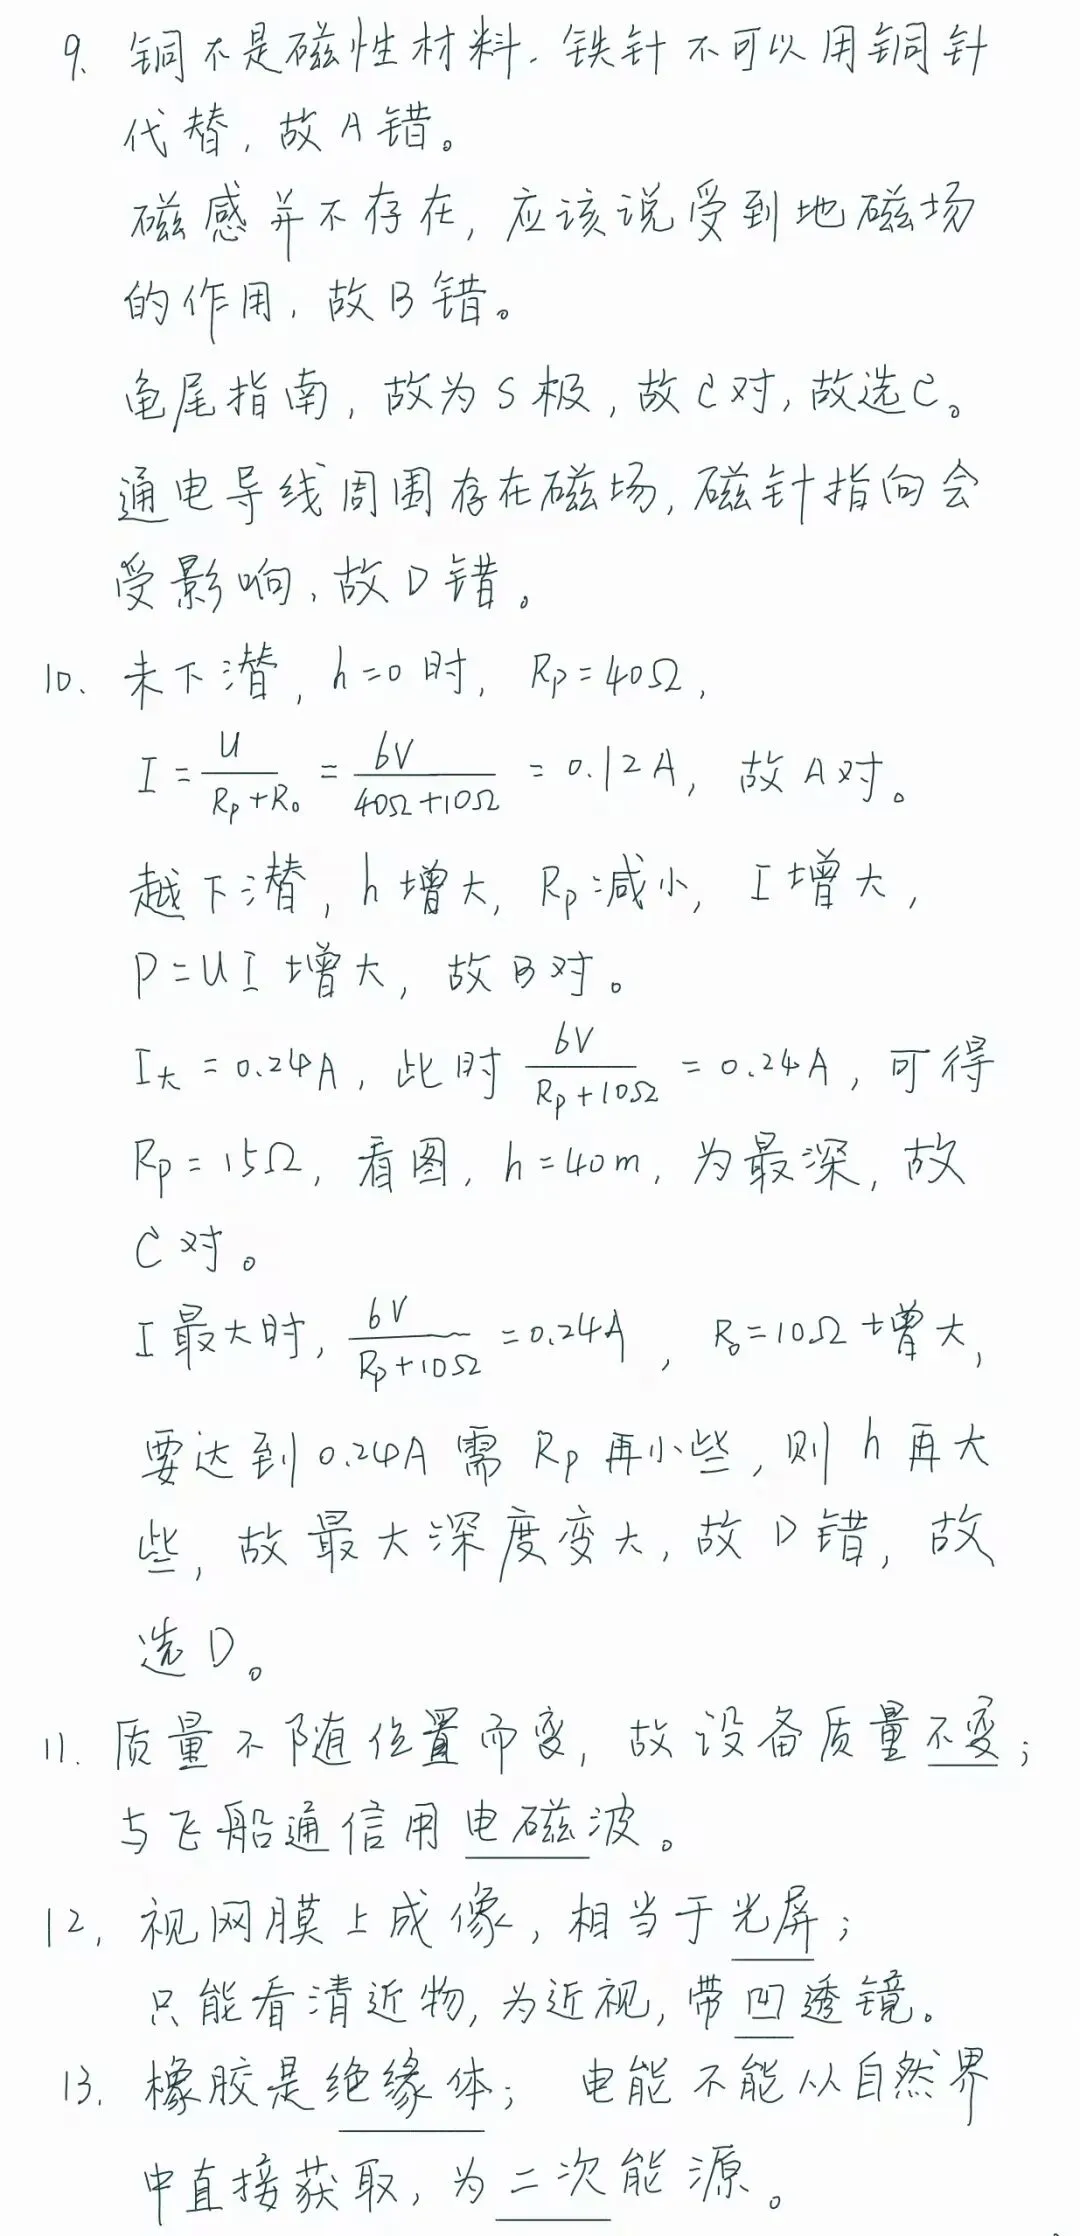 9. 铜不是磁性材料. 铁针不可以用铜针
代替, 故A错。
磁感并不存在, 应该说受到地磁场
的作用, 故B错。
龟尾指南, 故为S极, 故C对, 故选C。
通电导线周围存在磁场, 磁针指向会
受影响, 故D错。
10. 未下潜, h=0时, Rp=40Ω,
I = U/(Rp+R₀) = 6V/(40Ω+10Ω) = 0.12A, 故A对。
越下潜, h增大, Rp减小, I增大,
P=UI增大, 故B对。
I大=0.24A, 此时 6V/(Rp+10Ω) = 0.24A, 可得
Rp=15Ω, 看图, h=40m, 为最深, 故
C对。
I最大时, 6V/(Rp+10Ω) =0.24A, R₀=10Ω增大,
要达到0.24A需Rp再小些, 则h再大
些, 故最大深度变大, 故D错, 故
选D。
11. 质量不随位置而变, 故设备质量不变;
与飞船通信用电磁波。
12. 视网膜上成像, 相当于光屏;
只能看清近物, 为近视, 带凹透镜。
13. 橡胶是绝缘体; 电能不能从自然界
中直接获取, 为二次能源。